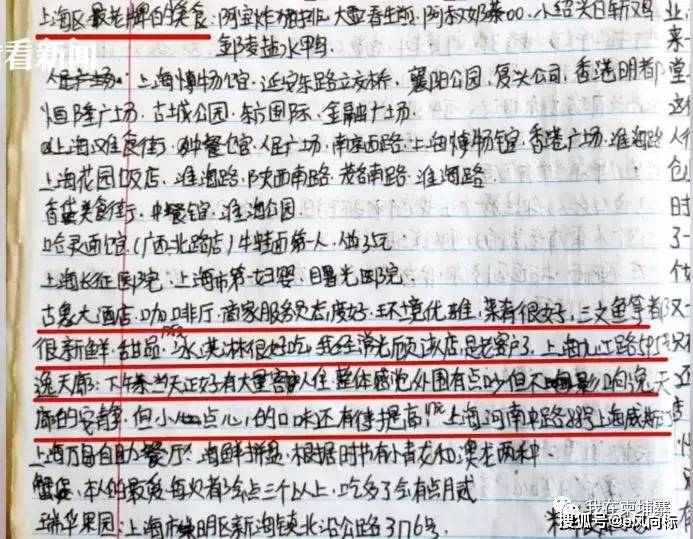 上海区最老牌的美食：阿宝炸猪排、大壶春生煎、阿叔奶茶00、小绍兴白斩鸡
看新闻
盐水鸭
人民广场、上海博物馆、延安东路立交桥、襄阳公园、复兴公司、香港名都
恒隆广场、古城公园、东方国际、金融广场
上海汉食街、中餐馆、人民广场、南京西路、上海博物馆、香港广场、淮海路
上海花园饭店、淮海路、陕西南路、茂名南路、淮海路
美食街、中餐馆、淮海公园
哈灵面馆、(广西北路店)牛蛙面第一人、
上海长征医院、上海市第一妇婴、曙光医院
古象大酒店、咖啡厅、商家服务员态度好、环境优雅、菜肴很好、三文鱼等都
很新鲜、甜品、冰淇淋很好吃、我经常光顾该店、是老客户了、上海九江路595
逸天廊：下午茶当天正好有大量客人住、整体感觉外围有点吵但不影响逸天
廊的安静、但小点心的口味还有待提高、上海河南中路 上海威斯
上海万岛自助餐厅：海鲜拼盘、根据时节有小青龙和澳龙两种
蟹 本人的最爱每次都会点三个以上、吃多了会有点月贰
瑞华果园：上海市崇明区新海镇北沿公路3176号
我在柬埔寨
搜狐号@